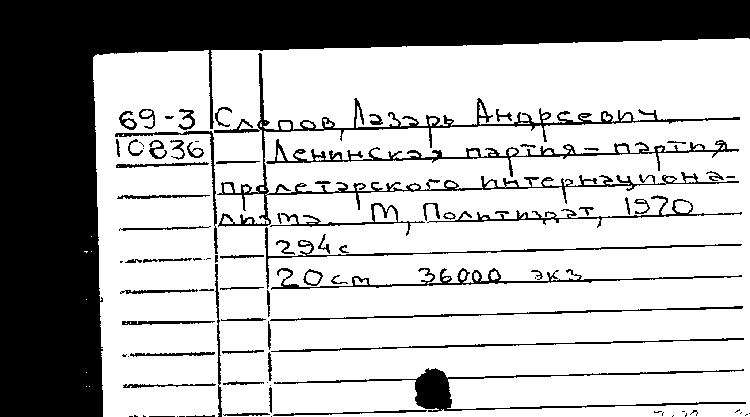 69-3 Слепов, Лазарь Андреевич
10836 Ленинская партия - партия
пролетарского интернациона-
лизма. М, Политиздат, 1970.
294 с
20 cm 36000 экз